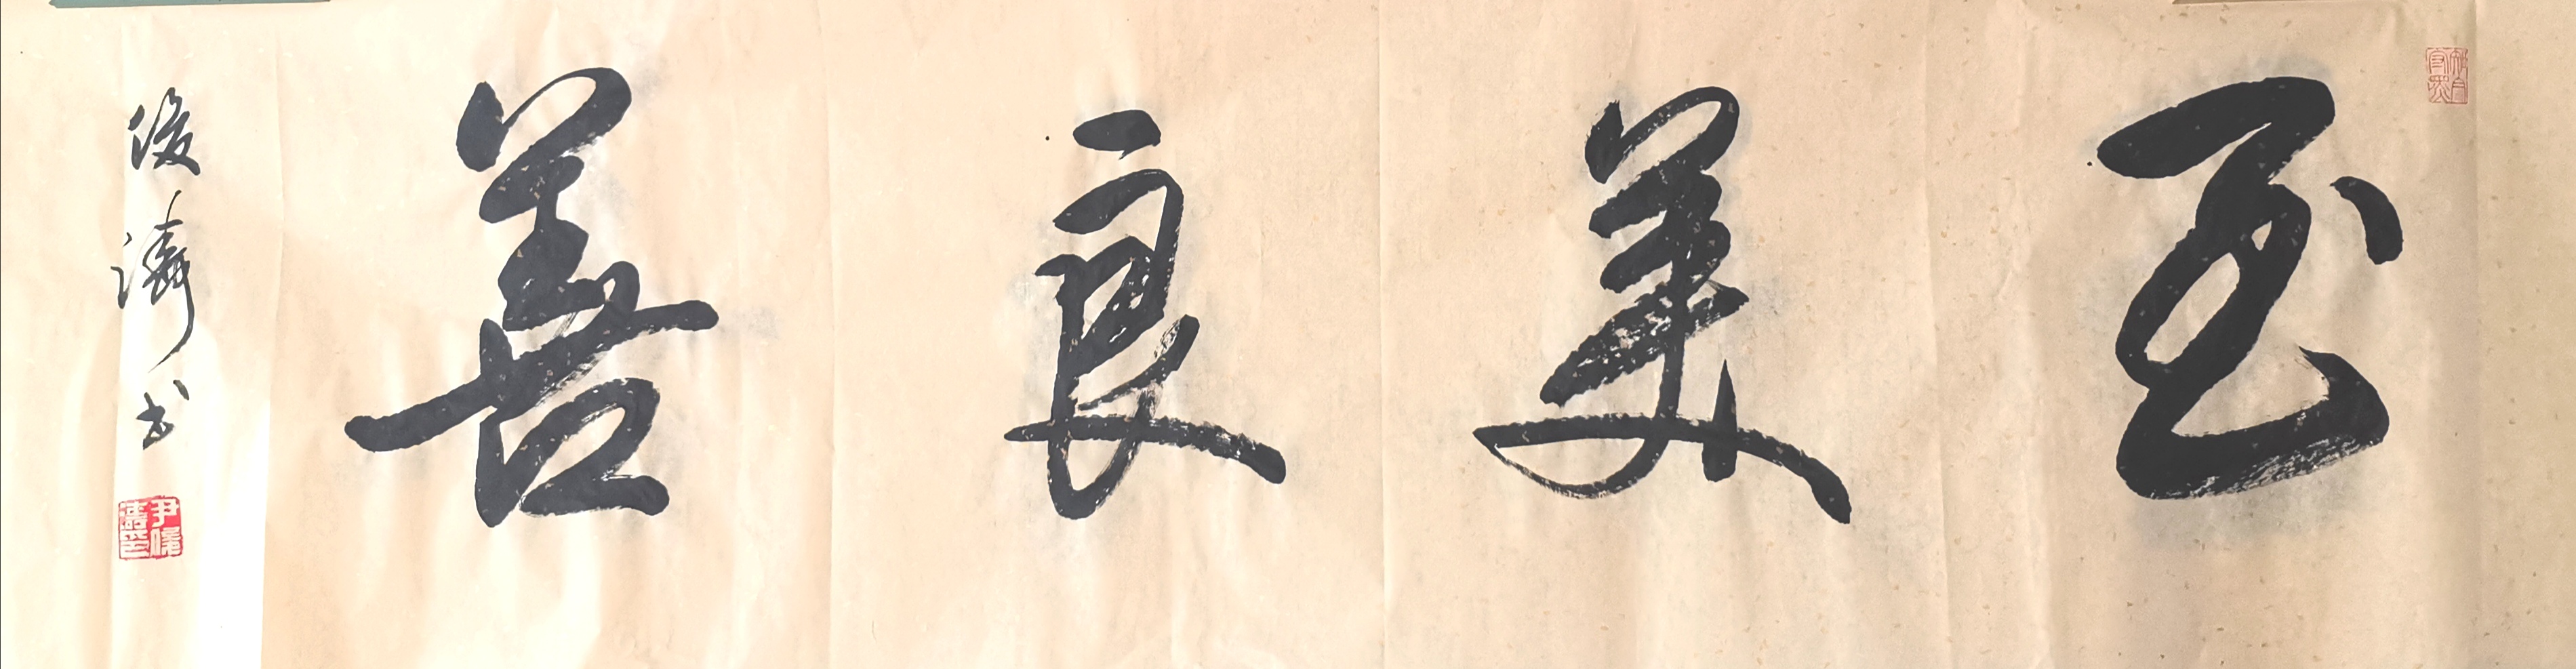 至美良善
俊濤书
尹俊濤印